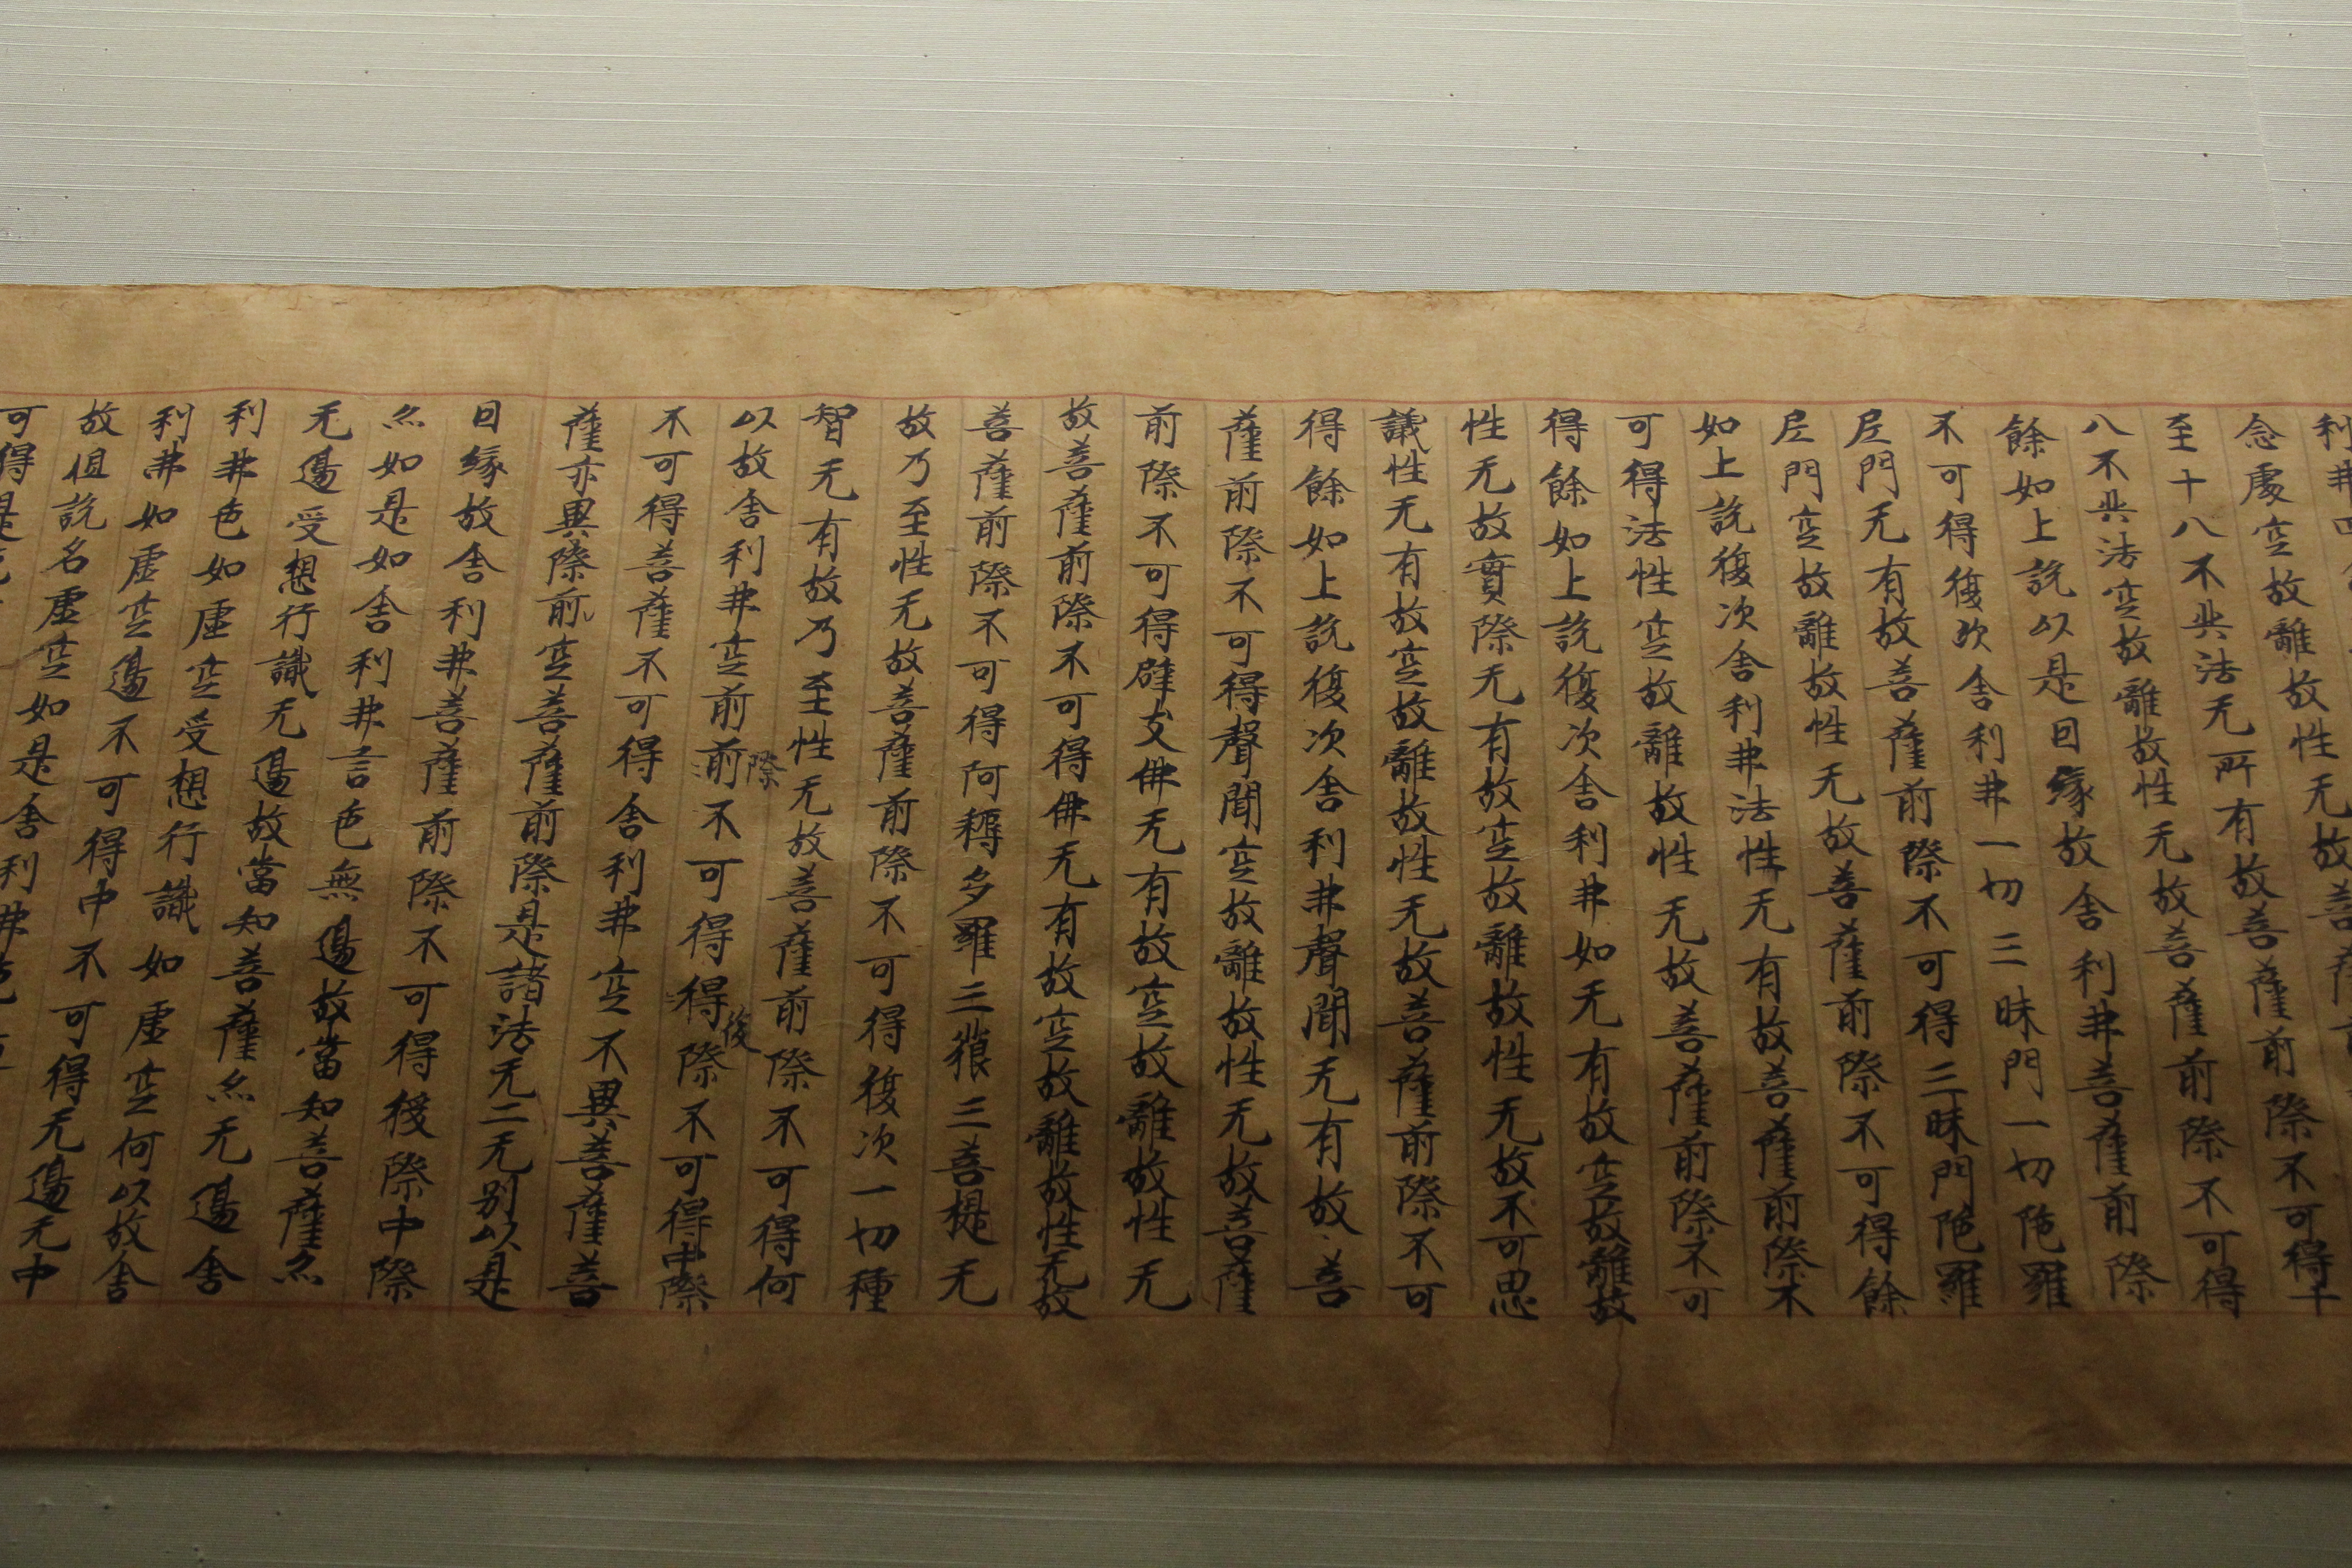 利弗四
念處空故離故性无故菩薩
至十八不共法无所有故菩薩前際不可得
八不共法空故離故性无故菩薩前際不可得
餘如上說以是因緣故舍利弗菩薩前際
不可得復次舍利弗一切三昧門一切陁羅
尼門无有故菩薩前際不可得三昧門陁羅
尼門空故離故性无故菩薩前際不可得餘
如上說復次舍利弗法性无有故菩薩前際不
可得法性空故離故性无故菩薩前際不可
得餘如上說復次舍利弗如无有故空故離故
性无故實際无有故空故離故性无故不可思
議性无有故空故離故性无故菩薩前際不可
得餘如上說復次舍利弗聲聞无有故菩
薩前際不可得聲聞空故離故性无故菩薩
前際不可得辟支佛无有故空故離故性无
故菩薩前際不可得佛无有故空故離故性无故
菩薩前際不可得阿耨多羅三藐三菩提无
故乃至性无故菩薩前際不可得復次一切種
智无有故乃至性无故菩薩前際不可得何
以故舍利弗空前前際不可得得後際不可得中際
不可得菩薩不可得舍利弗空不異菩薩菩
薩亦異際前空菩薩前際是諸法无二无别以是
因緣故舍利弗菩薩前際不可得後際中際
尒如是如舍利弗言色無邊故當知菩薩尒
无邊受想行識无邊故當知菩薩尒无邊舍
利弗色如虛空受想行識如虛空何以故舍
利弗如虛空邊不可得中不可得无邊无中
故但說名虛空如是舍利弗
可得是